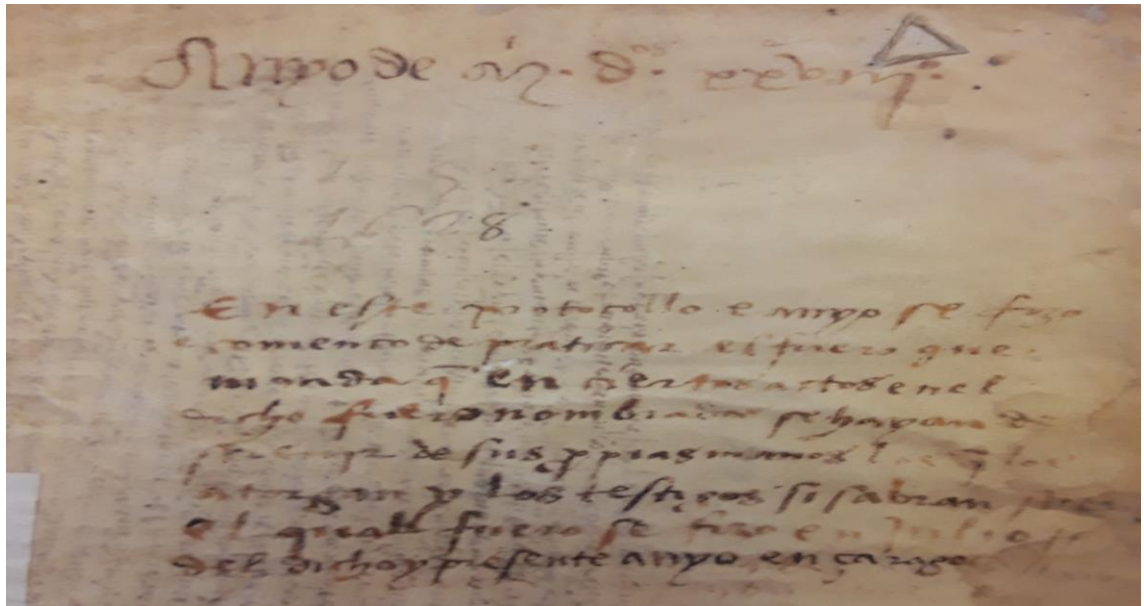 Anyo de M. D.os xxviij.
1528
En este protocollo e anyo se fizo
comienco de praticar el fuero que
manda q̃ en ciertos actos en el
dicho fuero nombrados se hayan de
screuir de sus ꝓpias manos los q̃ los
atorgan y los testigos si sabran
El qual fuero se fizo en Julio
del dicho y presente anyo en carago